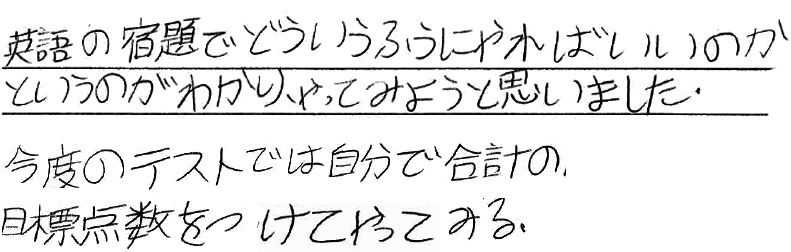 英語の宿題でどういうふうにやればいいのか
というのがわかり、やってみようと思いました.
今度のテストでは自分で合計の、
目標点数をつけてやってみる.